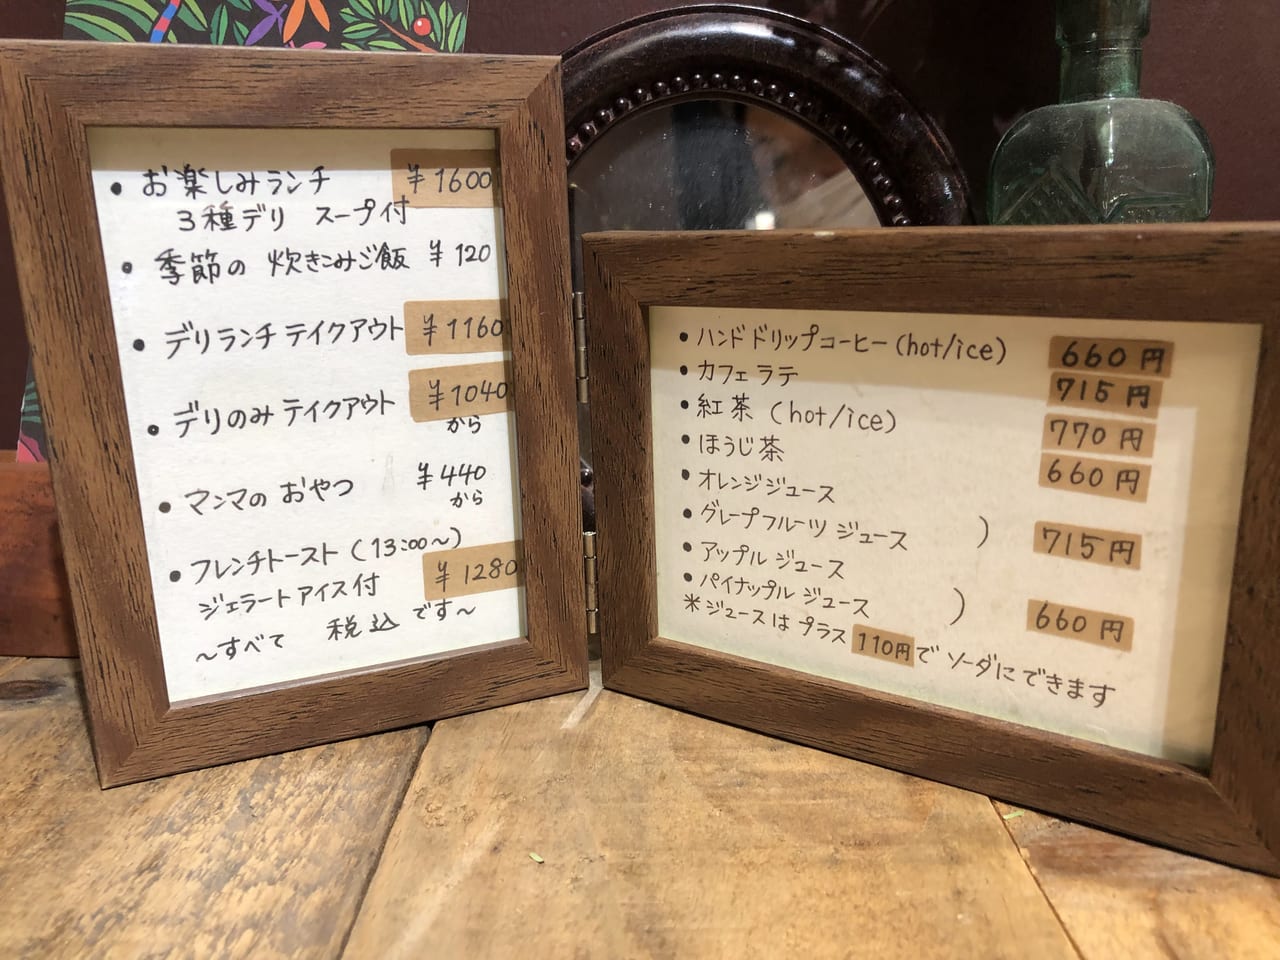 • お楽しみランチ ¥1600
3種デリ スープ付
• 季節の 炊きこみご飯 ¥120
• デリランチ テイクアウト ¥1160
• デリのみ テイクアウト ¥1040
から
• マンマの おやつ ¥440
から
• フレンチトースト (13:00〜)
ジェラートアイス付 ¥1280
〜すべて 税込 です〜
• ハンドドリップコーヒー (hot/ice) 660円
• カフェラテ 715円
• 紅茶 (hot/ice) 770円
• ほうじ茶 660円
• オレンジジュース
• グレープフルーツ ジュース ) 715円
• アップル ジュース
• パイナップル ジュース ) 660円
※ジュースは プラス 110円で ソーダにできます